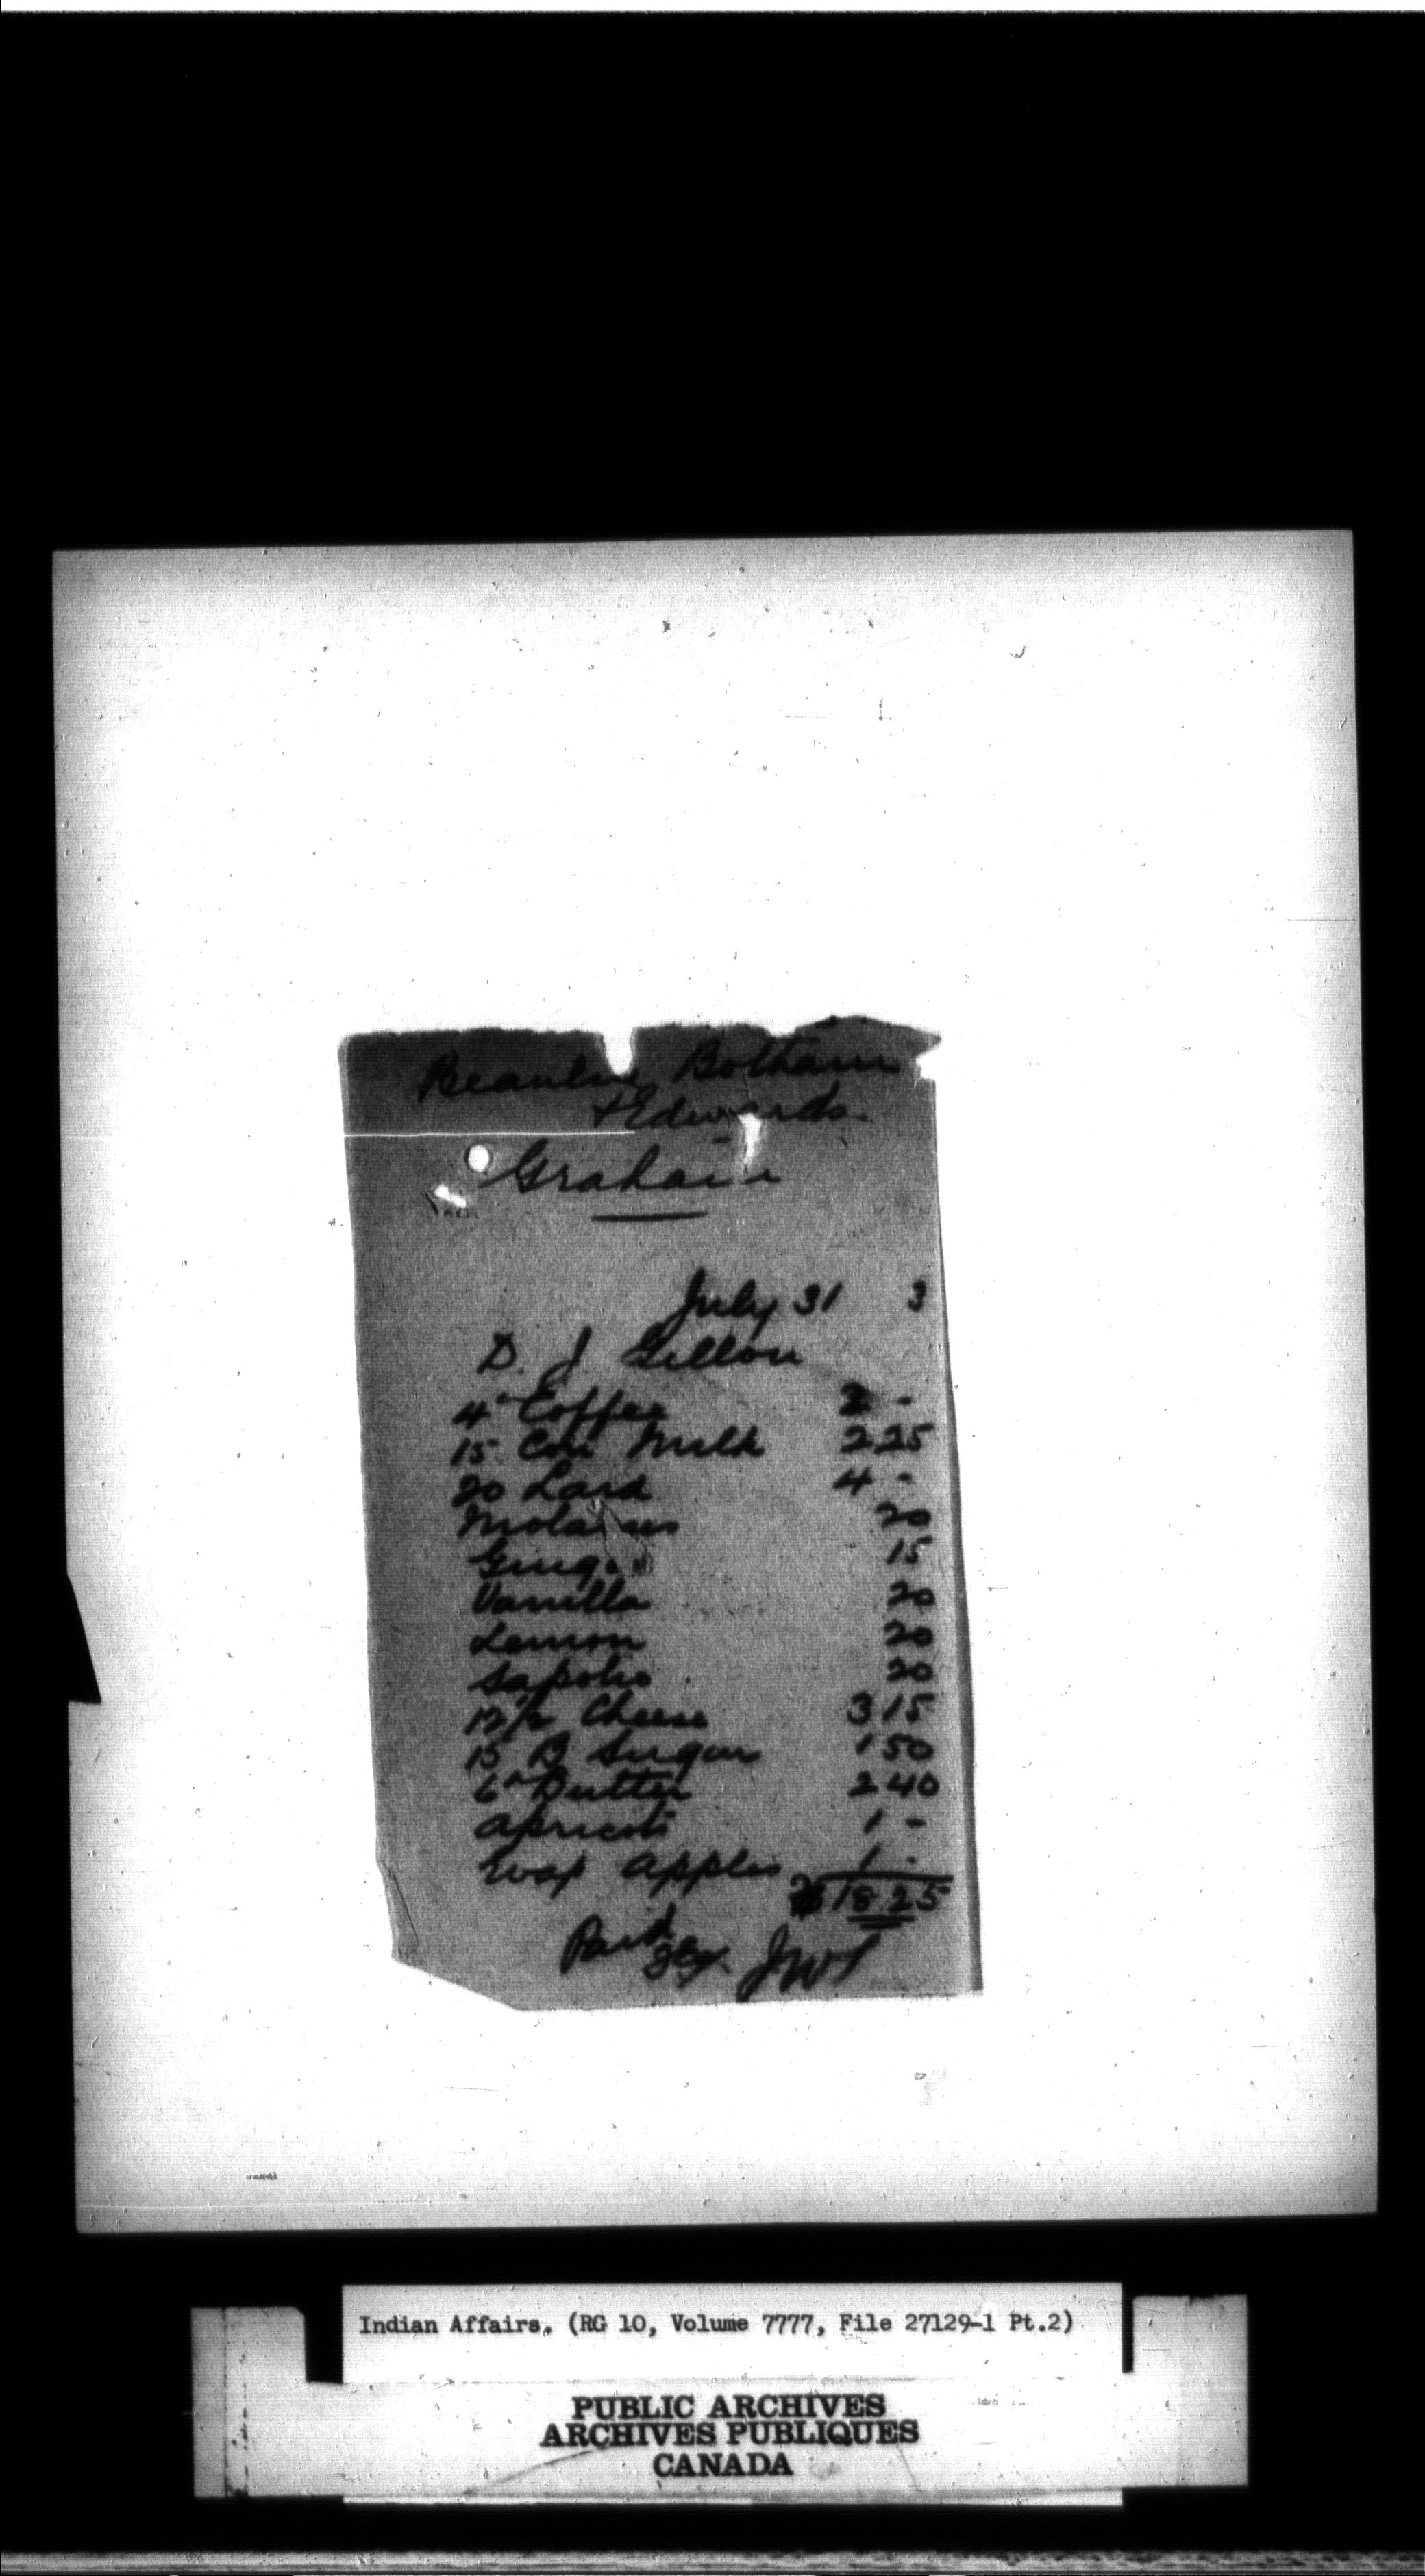 Beaulne Botham
+ Edwards
Graham
July 31 3
D. J Gillon
4 Coffee 2 -
15 Con Milk 2 25
20 Lard 4 -
Molasses 20
Ginger 15
Vanilla 20
Lemon 20
Sapolio 20
12 1/2 Cheese 3 15
15 B Sugar 1 50
6 Butter 2 40
Apricots 1 -
Evap Apples 1 -
$18.25
Paid
JWT
Indian Affairs. (RG 10, Volume 7777, File 27129-1 Pt.2)
PUBLIC ARCHIVES
ARCHIVES PUBLIQUES
CANADA